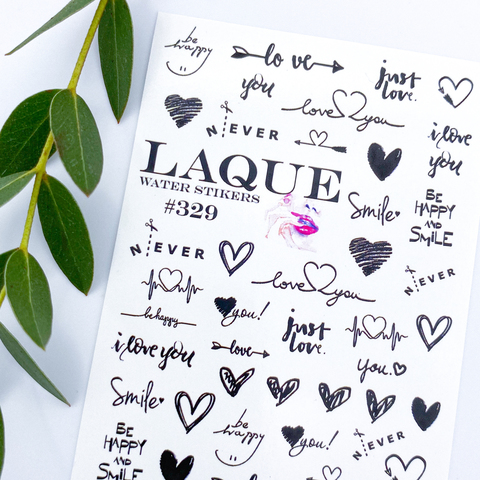 be
happy
love
you
just
love.
love you
N EVER
i love
you
LAQUE
WATER STIKERS
#329
Smile
BE
HAPPY
AND
SMiLE
N EVER
N EVER
love you
be happy
you!
just
love.
i love you
love
you.
Smile
be
happy
you!
N EVER
BE
HAPPY
AND
SMiLE